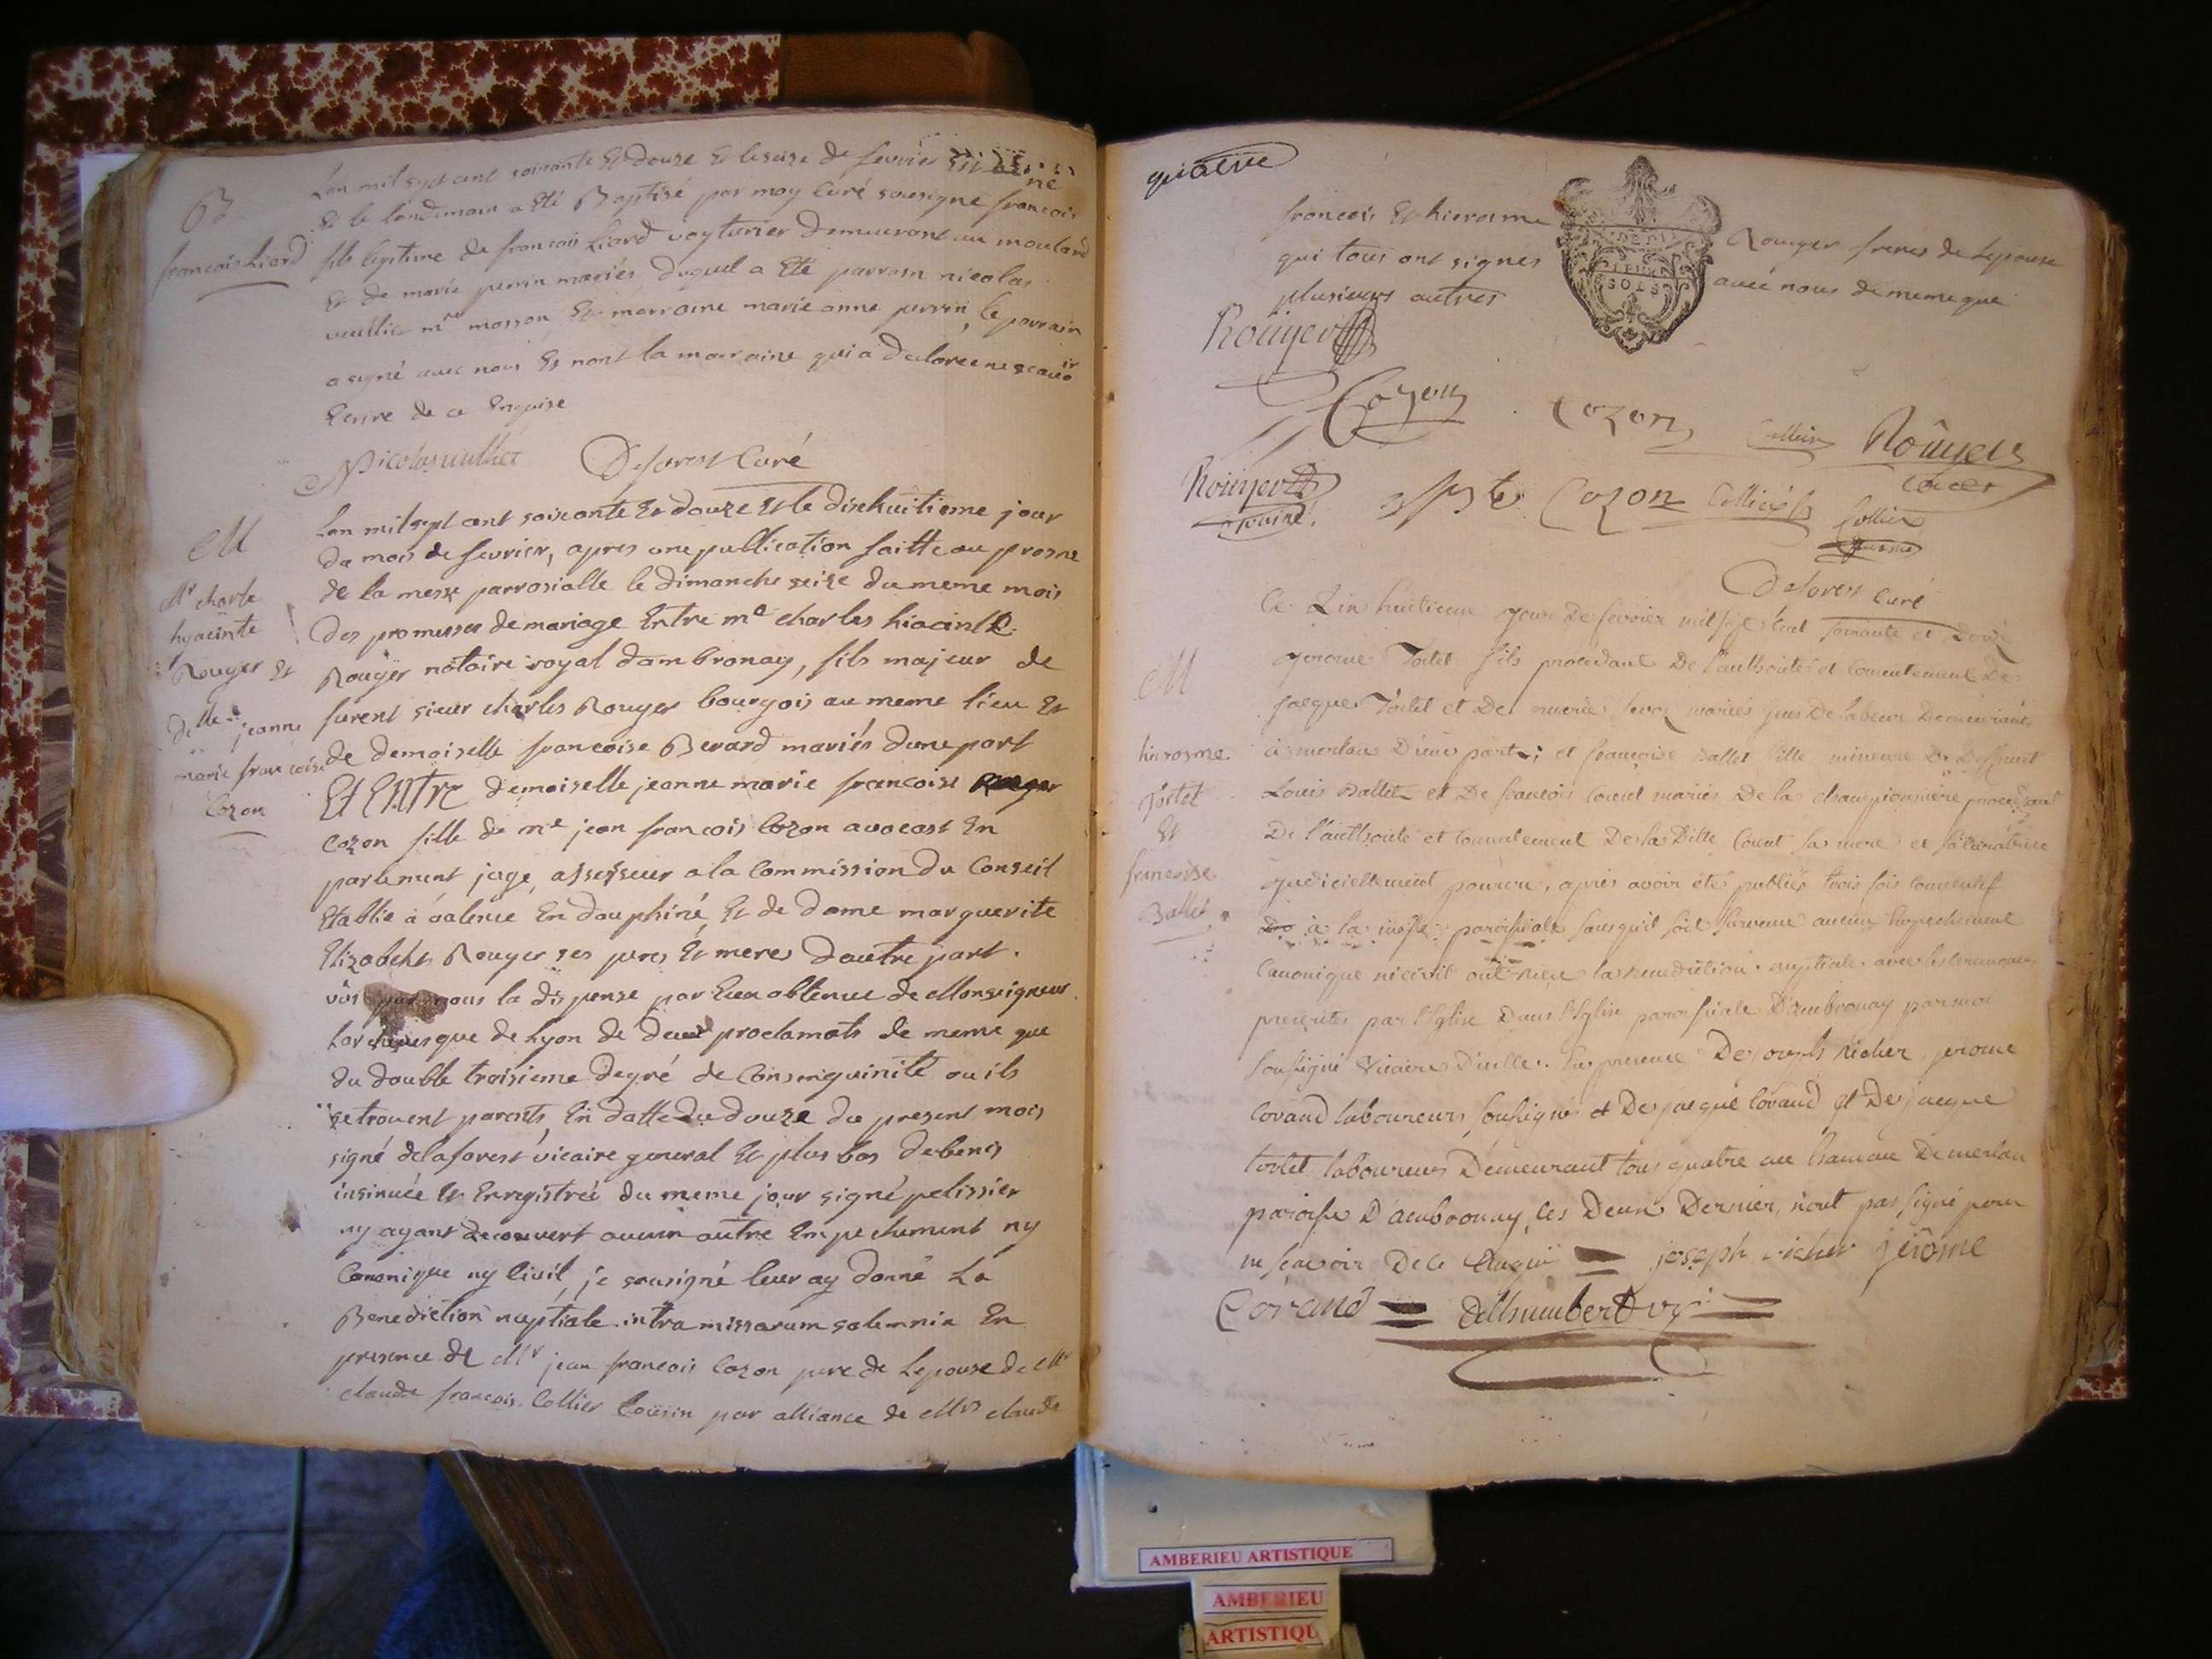 B
francois Liard
Lan mil sept cent soixante Et douze Et le seize de fevrier Est né
Et le landemain a Eté Baptisé par moy Curé sousigné francois
fils legitime de francois Liard voyturier demeurant au moulard
Et de marie perrin mariés, duquel a Eté parrain nicolas
vuillier me masson Et marraine marie anne perrin, le parrain
a signé avec nous Et non la marraine qui a declarée ne scavoir
Ecrire de ce Enquise
Nicolas vuillier Deforest Curé
M
Mr charle
hyacinte
Rouyer Et
delle jeanne
marie francoise
Cozon
Lan mil sept cent soixante Et douze Et le dixhuitieme jour
du mois de fevrier, apres une publication faitte au prosne
de la messe parrosialle le dimanche seize du meme mois
des promesses de mariage Entre me charles hiacinte
Rouyer notaire royal dambronay, fils majeur de
furent sieur charles Rouyer bourgois au meme lieu Et
de demoiselle francoise Berard mariés dune part
Et Entre demoiselle jeanne marie francoise
Cozon fille de me jean francois Cozon avocast En
parlement juge, assesseur a la Commission du Conseil
Etablie à valence En dauphiné, Et de dame marguerite
Elizabeht Rouyer ses peres Et meres dautre part.
vûs par nous la dispense par Eux obtenue de Monseigneur
Larcheveque de Lyon de deux proclamats de meme que
du double troisieme degré de Consenguinité ou ils
se trouvent parents, En datte du douze du present mois
signé delaforest vicaire general Et plus bas debenis
insinuée Et Enregistrée du meme jour signé pelissier
ny ayant decouvert aucun autre Empechement ny
Canonique ny Civil, je sousigné leur ay donné La
Benediction nuptiale intra missarum solemnia En
presence de Mr jean francois Cozon pere de Lepouse de Mr
claude francois Collier Cousin par alliance de Mrs claude
quatre
francois Et hierosme Rouyer freres de Lepoux
qui tous ont signés avec nous de meme que
plusieurs autres
DEUX
SOLS
Rouyer
Cozon Cozon Collier Rouyer
Rouyer Cozon Collier Collier
Deforest Curé
M
hierosme
tortet
Et
francoise
Ballet
Ce Dix huitieme jour De fevrier mil sept Cent soixante et Douze
jerome Tortet fils procedant De l'authorité et Consentement De
jacque Tortet et De mariés gens De labeur Demeurants
à merlan D'une part; et françoise Ballet fille mineure De Deffunt
Louis Ballet et De francois mariés De la championniere procedant
De l'authorité et Consentement De la Ditte sa mere et sa curatrice
judiciellement pourvue, après avoir étés publiés trois fois
à la messe paroissiale sans qu'il soit survenu aucun Empechement
Canonique ni civil ont reçu la benediction nuptiale avec les ceremonies
prescrites par l'Eglise Dans l'Eglise paroissiale D'ambronay par moi
soussigné vicaire D'icelle. En presence De joseph richer jerome
Corand laboureurs soussignés et De jacque Corand et De jacque
tortet laboureurs Demeurant tous quatre au hameau De merlan
paroisse D'ambronay, les Deux Dernier n'ont pas signé pour
ne scavoir De ce Enquis joseph richer jerome
Corand delhumbert vic
AMBERIEU ARTISTIQUE
AMBERIEU
ARTISTIQU